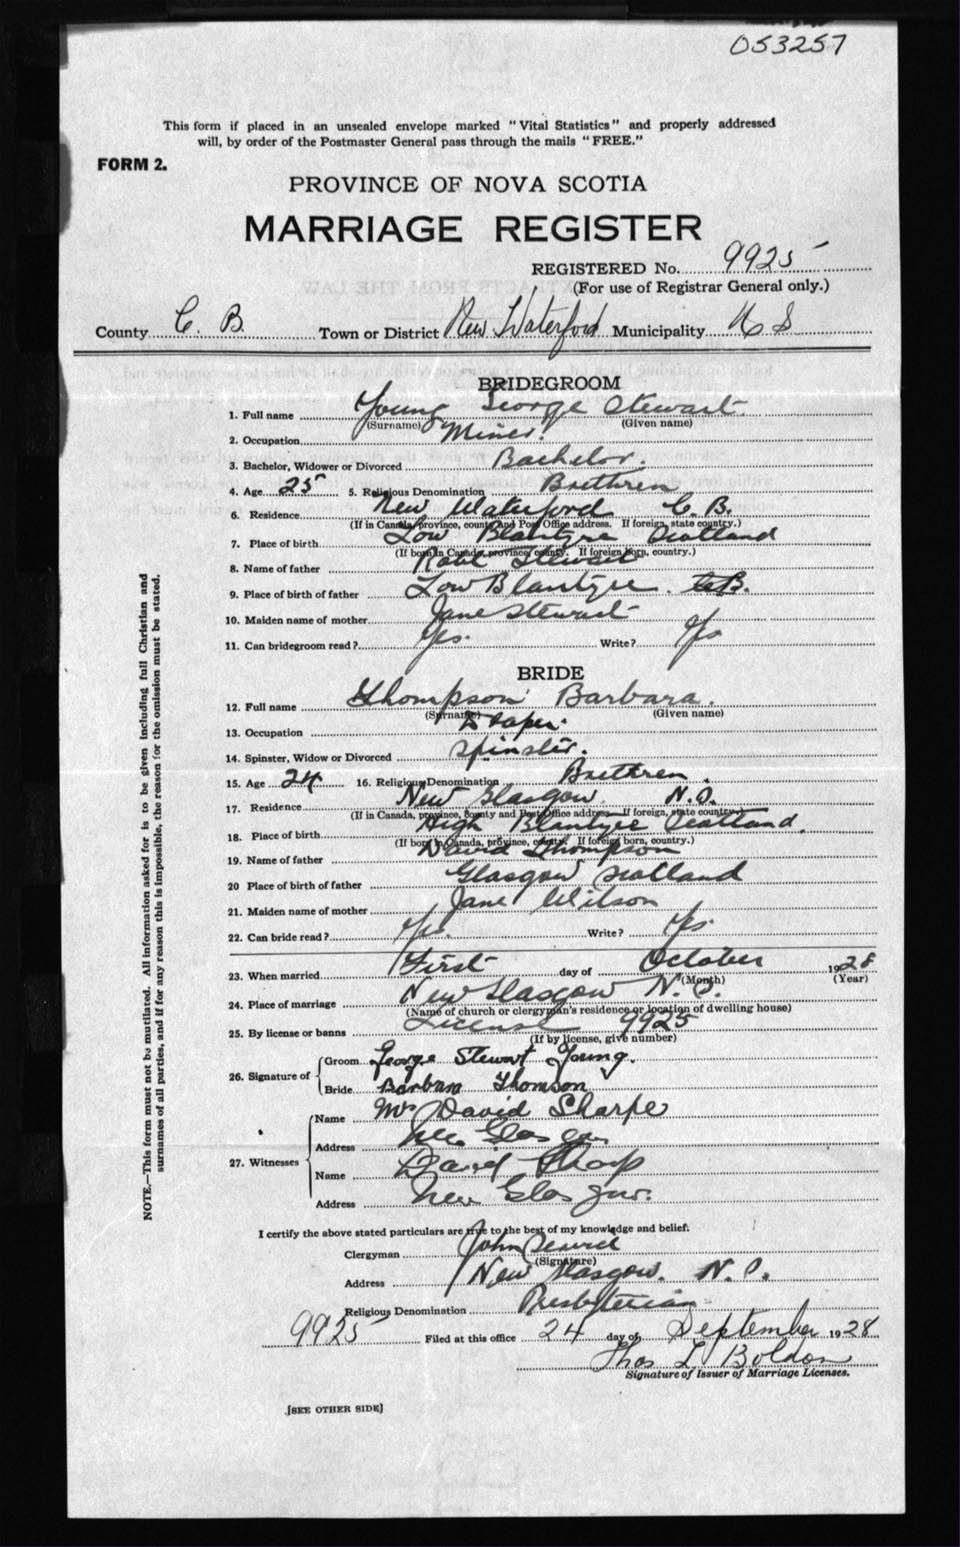 053257
This form if placed in an unsealed envelope marked "Vital Statistics" and properly addressed
will, by order of the Postmaster General pass through the mails "FREE."
FORM 2.
PROVINCE OF NOVA SCOTIA
MARRIAGE REGISTER
REGISTERED No. 9925
(For use of Registrar General only.)
County C. B. Town or District New Waterford Municipality N S
BRIDEGROOM
1. Full name Young George Stewart
(Surname) (Given name)
2. Occupation Miner.
3. Bachelor, Widower or Divorced Bachelor.
4. Age 25 5. Religious Denomination Brethren
6. Residence New Waterford C. B.
(If in Canada, province, county and Post Office address. If foreign, state country.)
7. Place of birth Low Blantyre Scotland
(If born in Canada, province, county. If foreign born, country.)
8. Name of father Robt Stewart
9. Place of birth of father Low Blantyre.
10. Maiden name of mother Jane Stewart
11. Can bridegroom read? Yes. Write? Yes
BRIDE
12. Full name Thompson Barbara.
(Surname) (Given name)
13. Occupation
14. Spinster, Widow or Divorced Spinster.
15. Age 24 16. Religious Denomination Brethren.
17. Residence New Glasgow N.S.
(If in Canada, province, county and Post Office address. If foreign, state country.)
18. Place of birth High Blantyre Scotland.
(If born in Canada, province, county. If foreign born, country.)
19. Name of father David Thompson
20 Place of birth of father Glasgow Scotland
21. Maiden name of mother Jane Wilson
22. Can bride read? Yes. Write? Yes.
23. When married First day of October 1928
(Month) (Year)
24. Place of marriage New Glasgow N.S.
(Name of church or clergyman's residence or location of dwelling house)
25. By license or banns License 9925
(If by license, give number)
26. Signature of Groom George Stewart Young.
Bride Barbara Thomson
27. Witnesses Name Mrs David Sharpe
Address New Glasgow
Name David Sharp
Address New Glasgow.
I certify the above stated particulars are true to the best of my knowledge and belief.
Clergyman John
(Signature)
Address New Glasgow. N.S.
Religious Denomination Presbyterian
9925 Filed at this office 24 day of September 1928
Thos L. Boldon
Signature of Issuer of Marriage Licenses.
[SEE OTHER SIDE]
NOTE.—This form must not be mutilated. All information asked for is to be given including full Christian and
surnames of all parties, and if for any reason this is impossible, the reason for the omission must be stated.